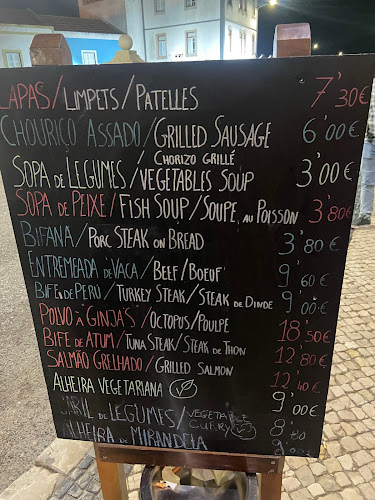 LAPAS/LIMPETS/PATELLES 7'30€
CHOURIÇO ASSADO/GRILLED SAUSAGE 6'00€
CHORIZO GRILLÉ
SOPA DE LEGUMES/VEGETABLES SOUP 3'00€
SOPA DE PEIXE/FISH SOUP/SOUPE AU POISSON 3'80€
BIFANA/PORC STEAK ON BREAD 3'80€
ENTREMEADA DE VACA/BEEF/BOEUF 9'60€
BIFE DE PERU/TURKEY STEAK/STEAK DE DINDE 9'00€
POLVO À GINJA'S/OCTOPUS/POULPE 18'50€
BIFE DE ATUM/TUNA STEAK/STEAK DE THON 12'80€
SALMÃO GRELHADO/GRILLED SALMON 12'40€
ALHEIRA VEGETARIANA 9'00€
CARIL DE LEGUMES/VEGETABLE CURRY 8'80
ALHEIRA DE MIRANDELA 9'00€